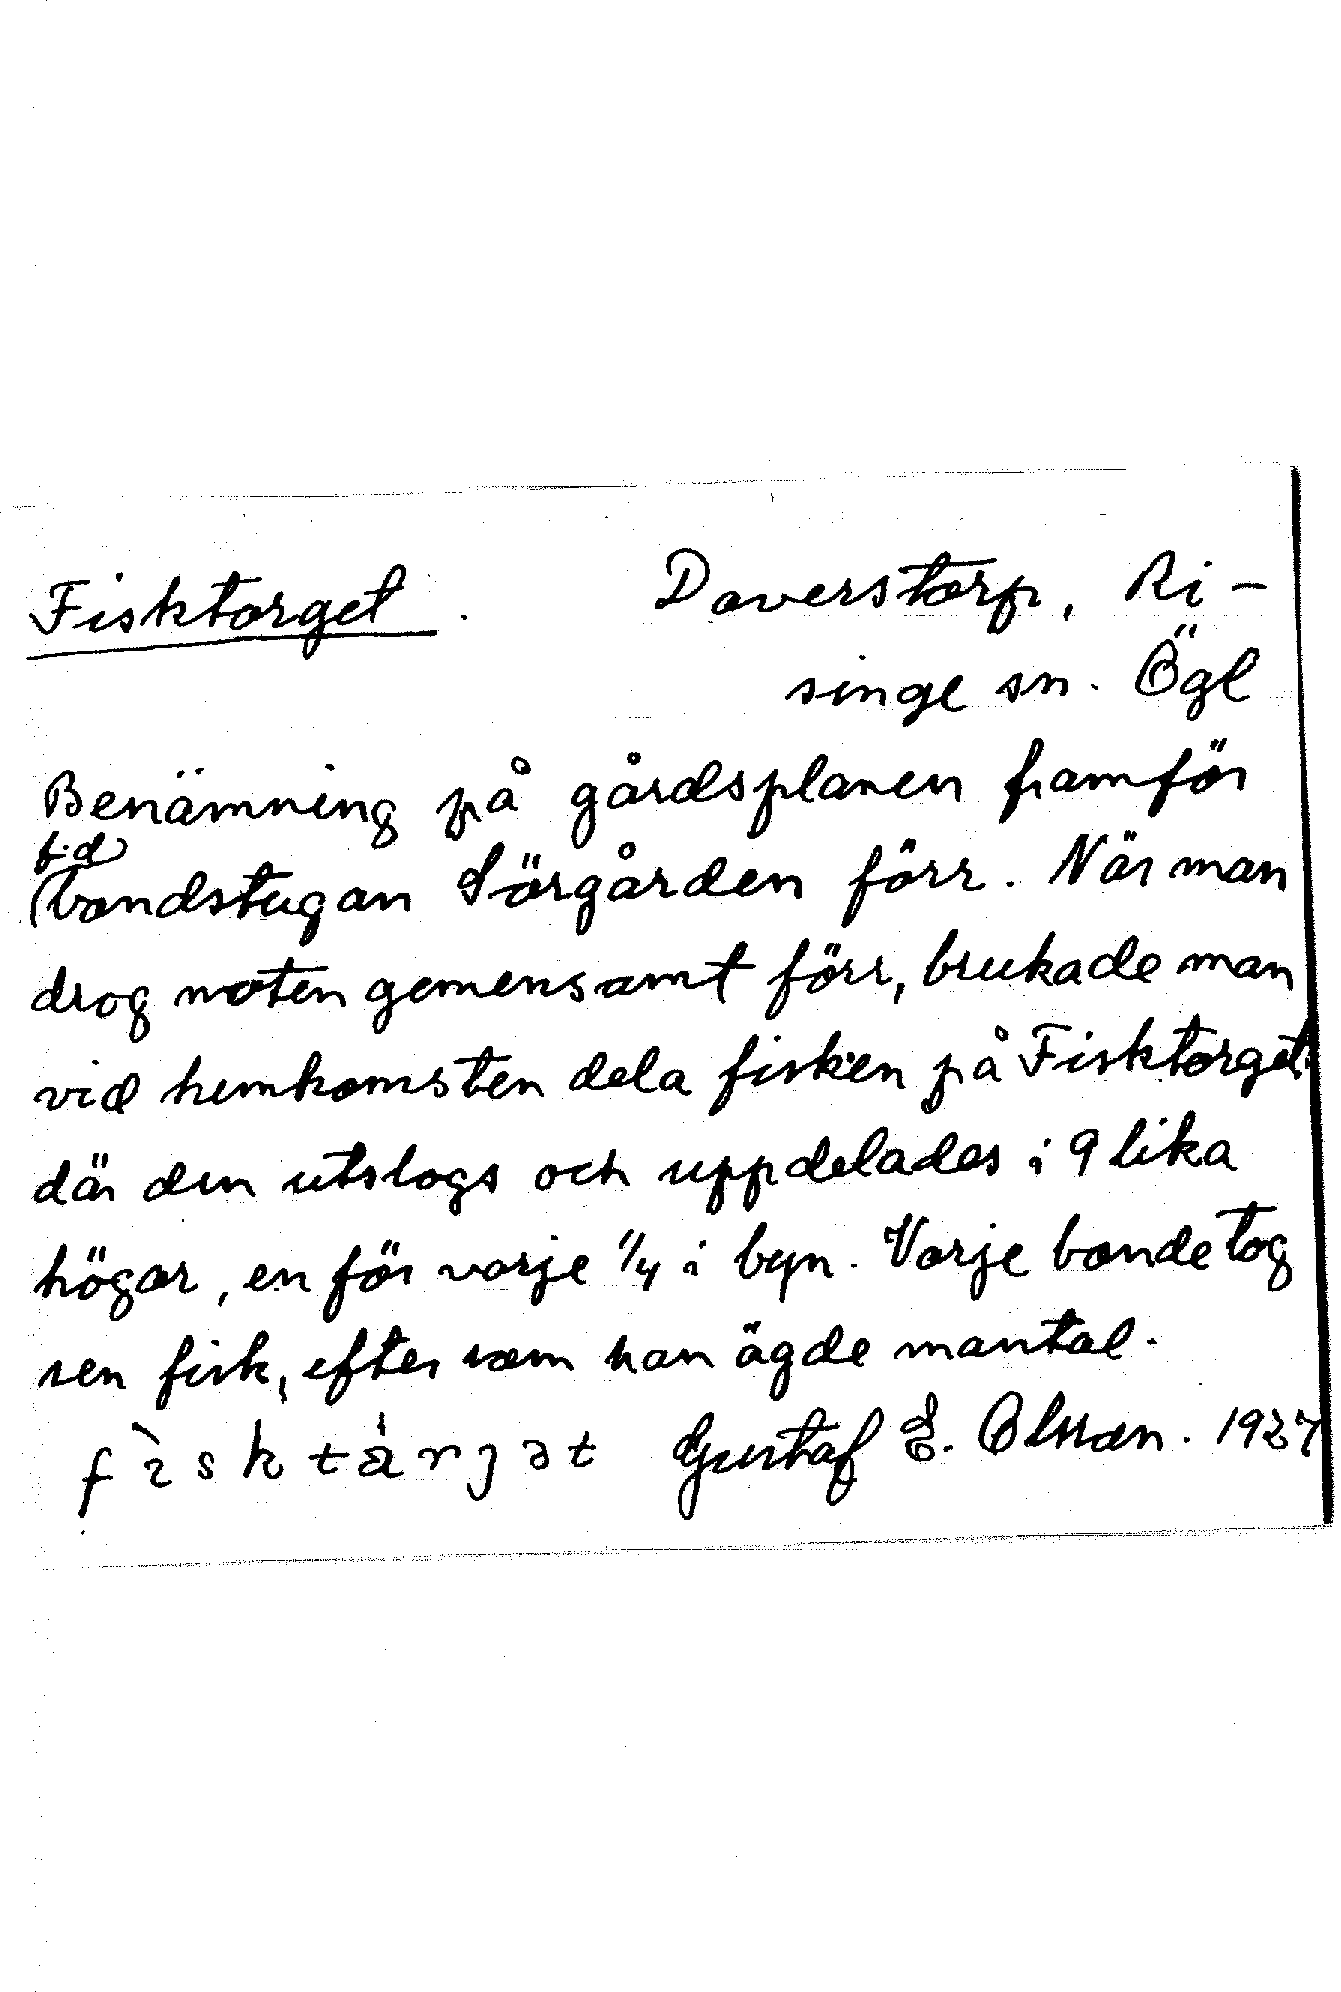 Fisktorget. Daverstorp, Ri-
singe sn. Ögl
Benämning på gårdsplanen framför
f.d
(bondstugan Sörgården förr. När man
drog noten gemensamt förr, brukade man
vid hemkomsten dela fisken på Fisktorget
där den utslogs och uppdelades i 9 lika
högar, en för varje 1/4 i byn. Varje bonde tog
sen fisk, efter som han ägde mantal.
fìsktårjət Gustaf E. Olsson. 1927